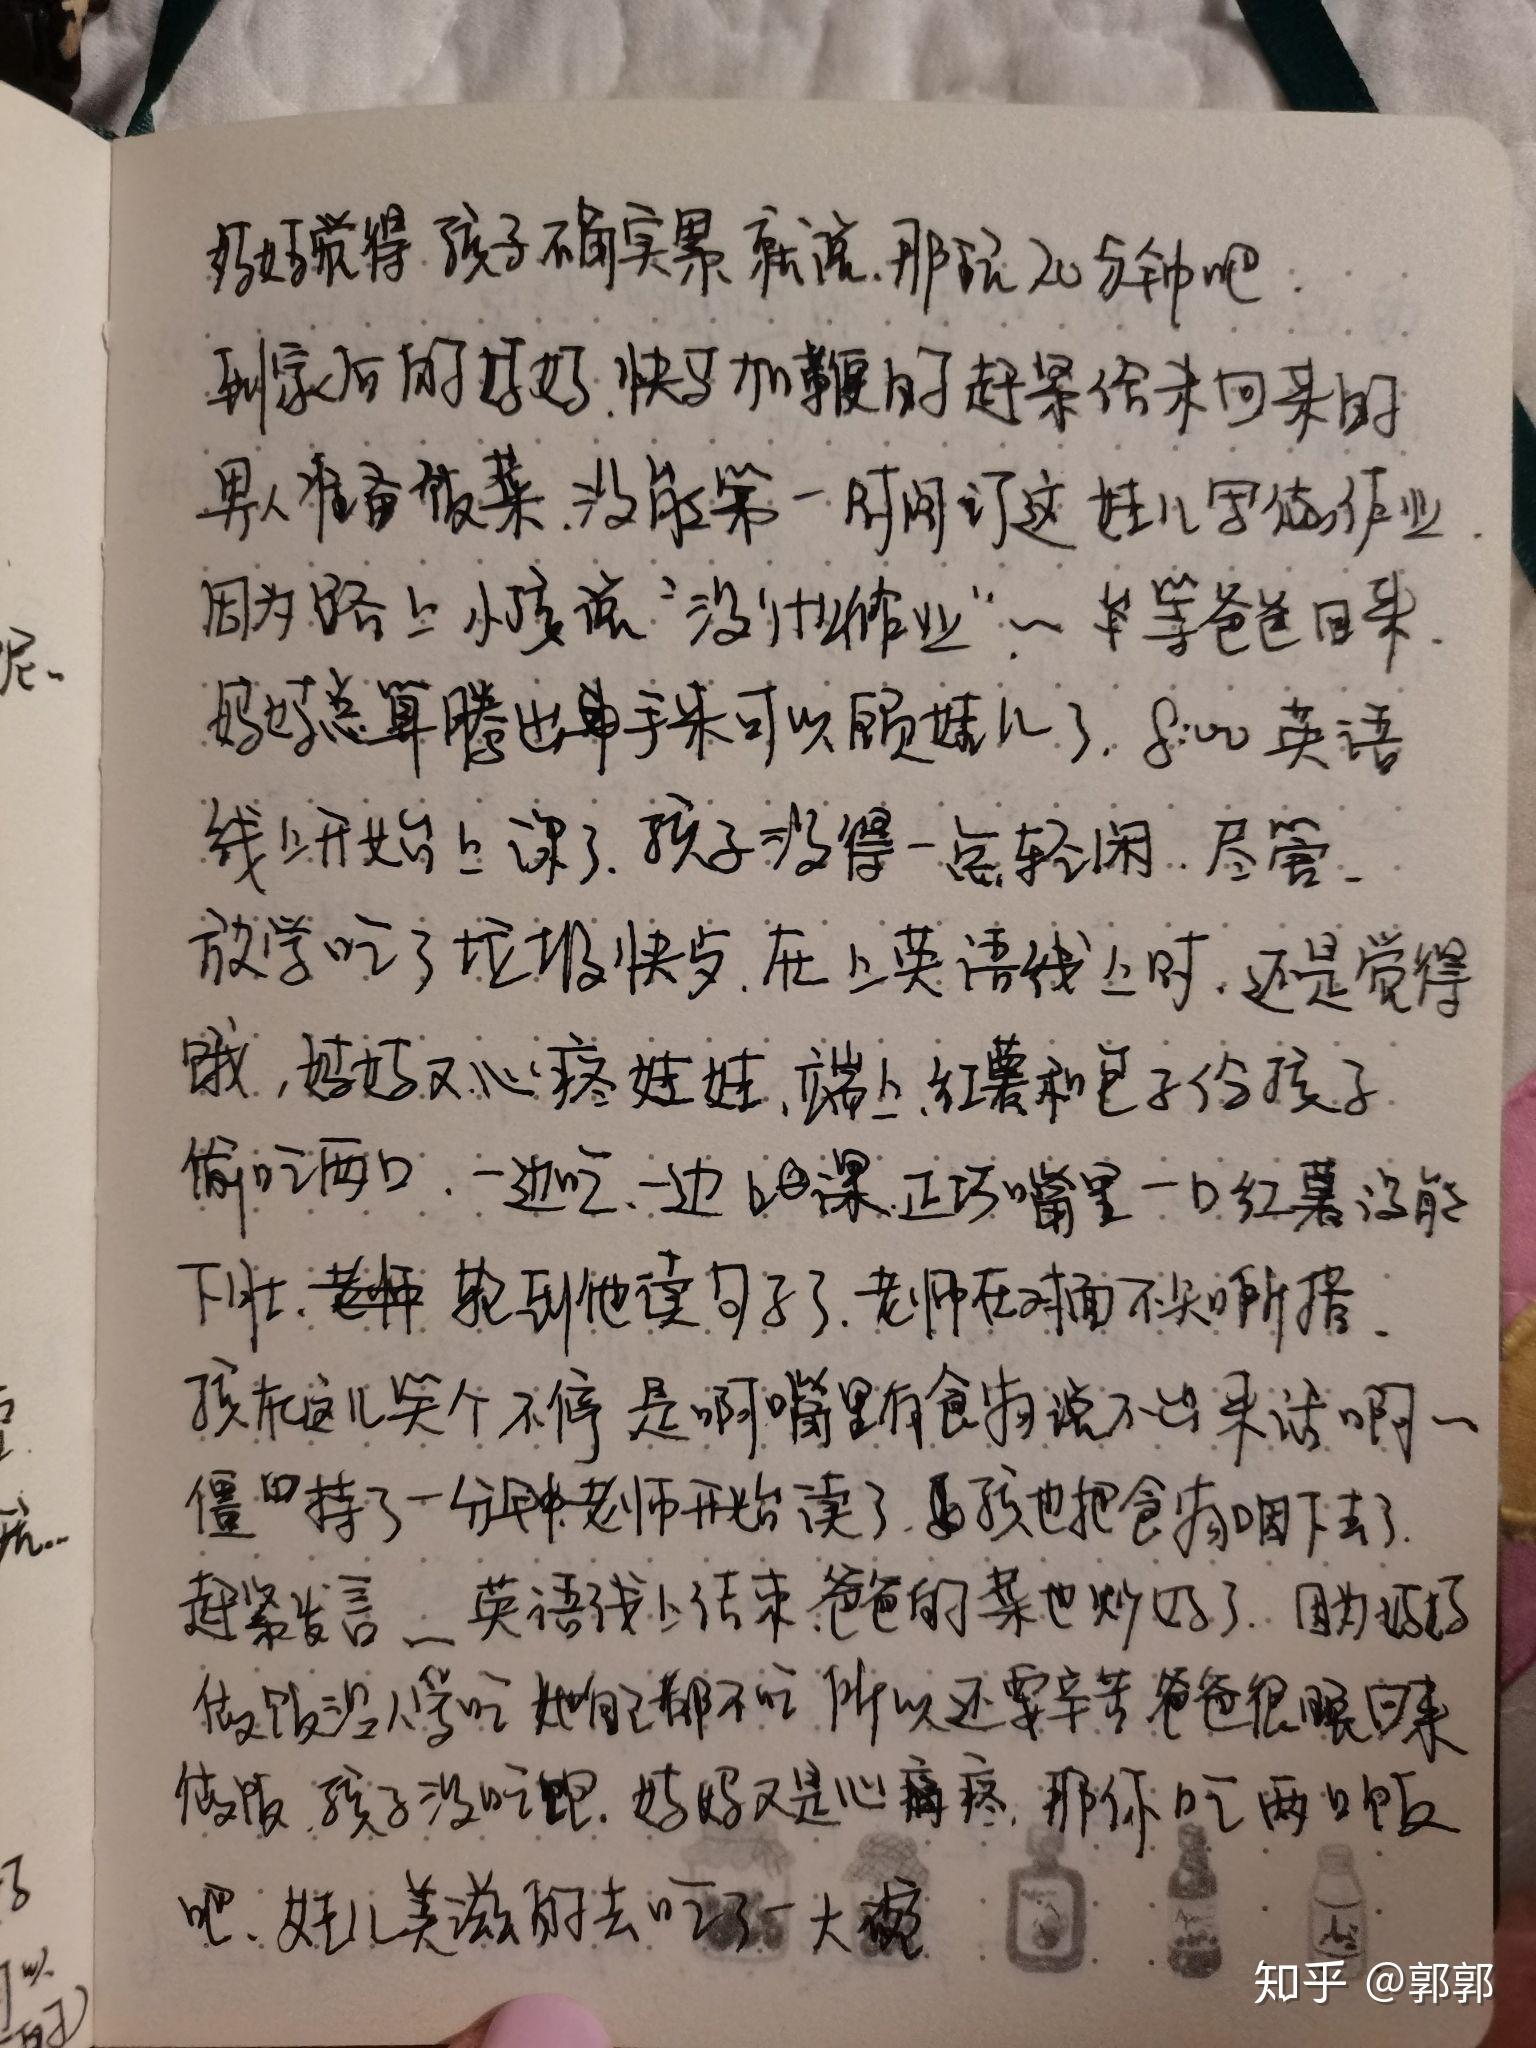 妈妈觉得孩子不确实累就说.那玩20分钟吧.
到家后的妈妈.快马加鞭的赶紧给未回来的
男人准备饭菜.没能第一时间订这娃儿写做作业.
因为路上小孩说"没什么作业".~半等爸爸回来.
妈妈总算腾出手来可以顾娃儿了.8:00英语
线上开始上课了.孩子没得一点轻闲..尽管
放学吃了垃圾快点.在上英语线上时.还是觉得
饿,妈妈又心疼娃娃,端上红薯和包子给孩子
偷吃两口.一边吃.一边上课.正巧嘴里一口红薯没能
下肚.老师轮到他读句子了.老师在对面不知所措.
孩在这儿笑个不停是啊嘴里有食物说不出来话啊~
僵持了一分钟老师开始读了.孩也把食物咽下去了.
赶紧发言~英语线上结束.爸爸的菜也炒好了..因为妈妈
做饭没人爱吃她自己都不吃所以还要辛苦爸爸很晚回来
做饭.孩子没吃饱.妈妈又是心疼.那你吃两口饭
吧.娃儿美滋的去吃了一大碗
呢~
知乎 @郭郭